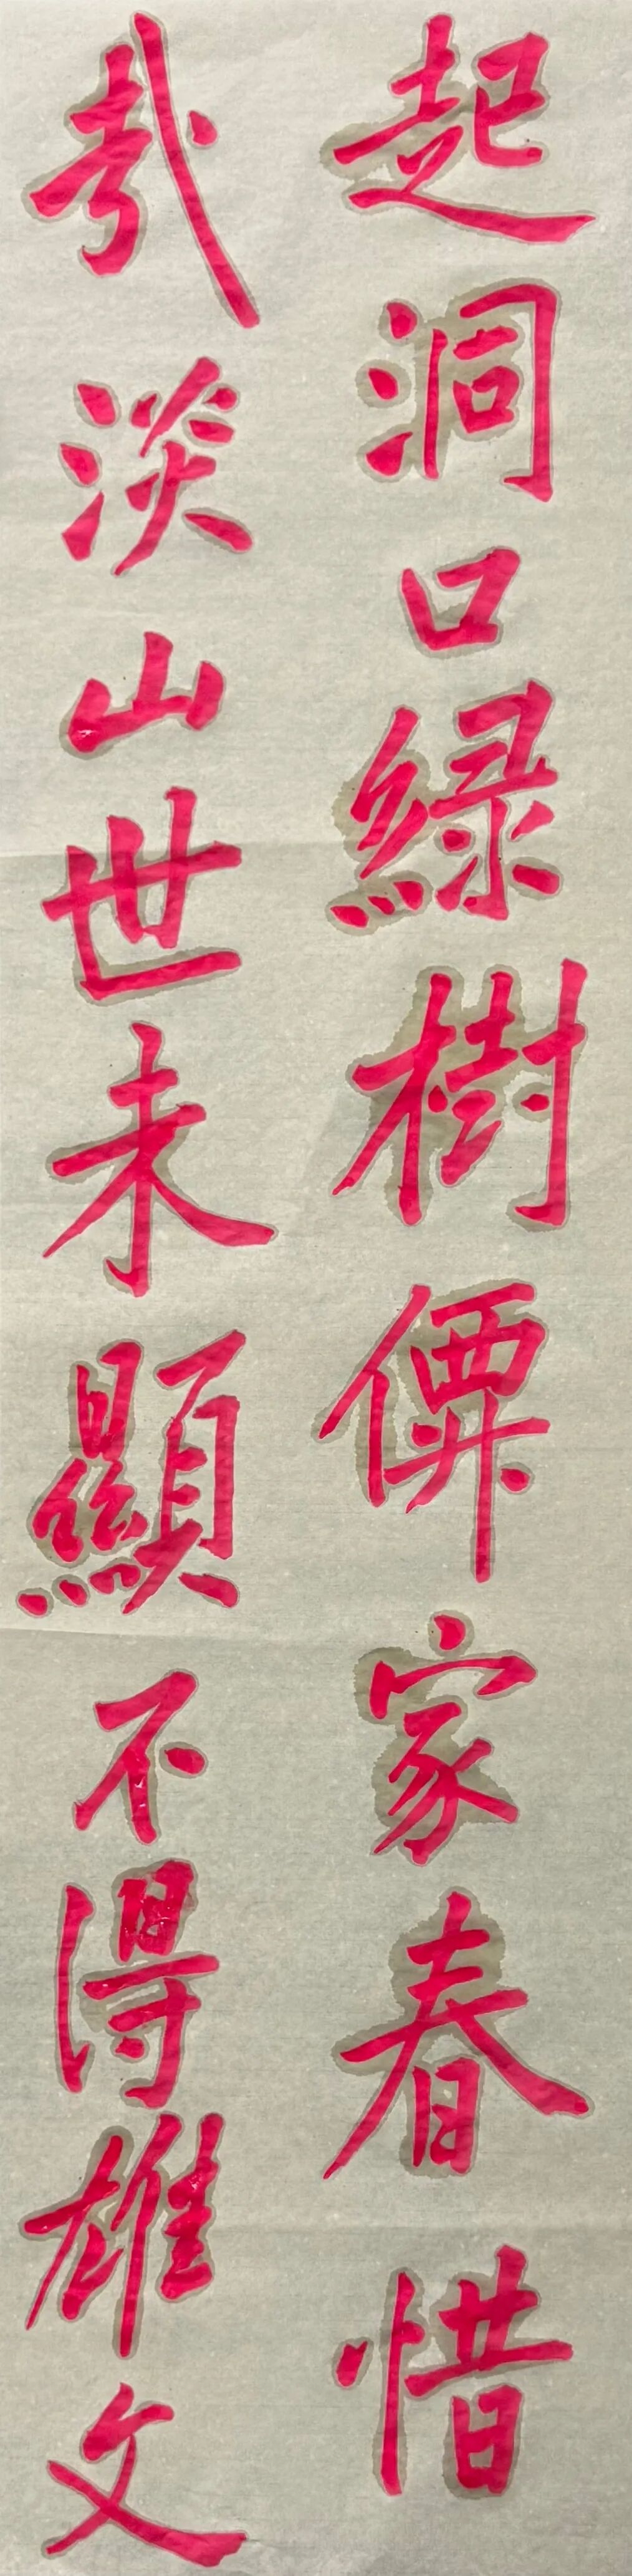 起洞口綠樹僊家春惜
哉淡山世未顯不得雄文